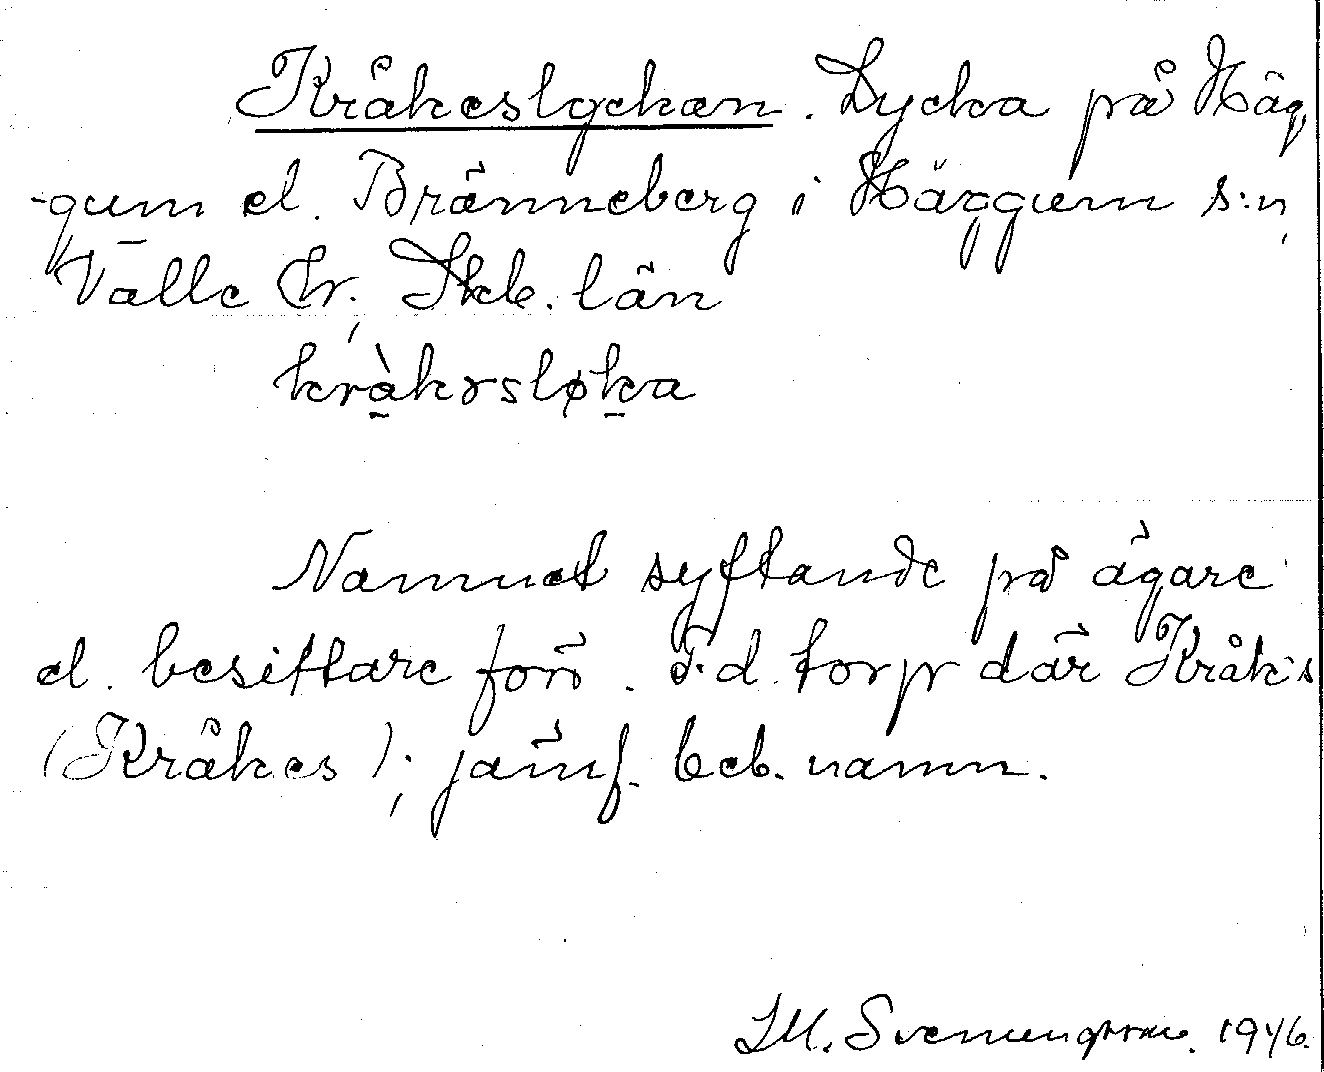 Kråkeslyckan. Lycka på Häg-
-gum el. Bränneberg i Häggum s:n,
Valle hr, Skb. län
kràkɤsløka
Namnet syftande på ägare
el. besittare förr. F.d. torp där Kråk's
(Kråkes); jämf. beb. namn.
1946.